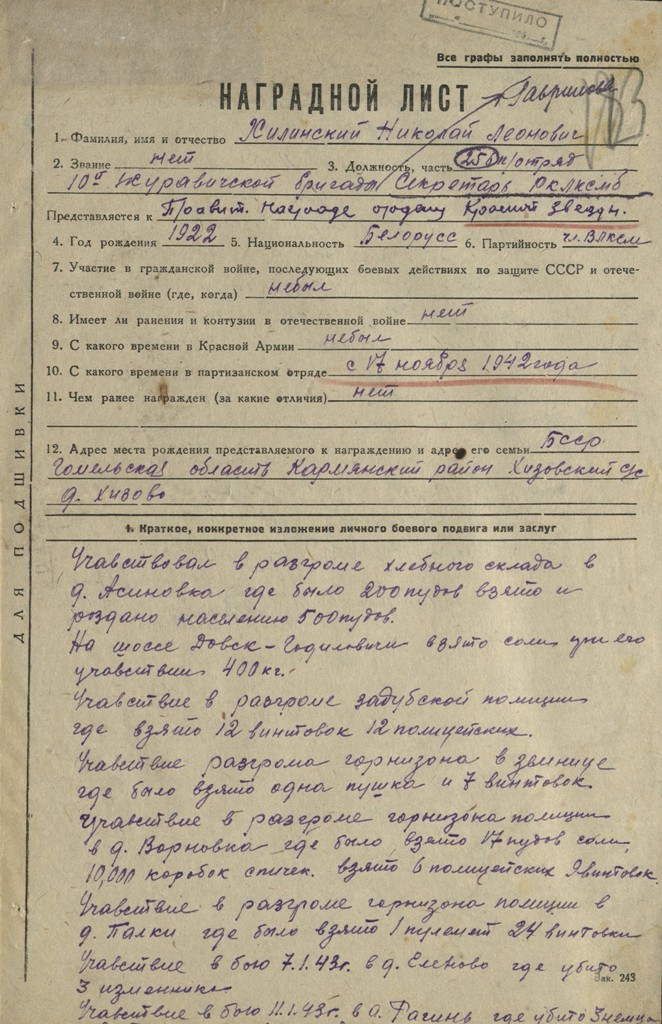 ПОСТУПИЛО
Все графы заполнять полностью
НАГРАДНОЙ ЛИСТ
1. Фамилия, имя и отчество Хилинский Николай Леонович
2. Звание нет 3. Должность, часть 256 п/отряд
10й Журавичской бригады Секретарь РКЛКСМБ
Представляется к Правит. Награде ордену Красной Звезды.
4. Год рождения 1922 5. Национальность Белорусс 6. Партийность чл. ВЛКСМ
7. Участие в гражданской войне, последующих боевых действиях по защите СССР и отече-
ственной войне (где, когда) небыл
8. Имеет ли ранения и контузии в отечественной войне нет
9. С какого времени в Красной Армии небыл
10. С какого времени в партизанском отряде с 17 ноября 1942 года
11. Чем ранее награжден (за какие отличия) нет
12. Адрес места рождения представляемого к награждению и адрес его семьи БССР
Гомельская область Кармянский район Хизовский с/с
д. Хизово
1. Краткое, конкретное изложение личного боевого подвига или заслуг
Учавствовал в разгроме хлебного склада в
д. Асиновка где было 200 пудов взято и
роздано населению 500 пудов.
На шоссе Довск-Годиловичи взято соли при его
учавствии 400 кг.
Учавствие в разгроме задубской полиции
где взято 12 винтовок 12 полицейских.
Учавствие разгрома горнизона в звинице
где было взято одна пушка и 7 винтовок
Учавствие в разгроме горнизона полиции
в д. Ворновка где было взято 17 пудов соли,
10,000 коробок спичек. взято 6 полицейских 9 винтовок.
Учавствие в разгроме горнизона полиции в
д. Палки где было взято 1 пулемет 24 винтовки
Учавствие в бою 7.1.43г. в д. Еленово где убито
3 изменника
Зак. 243
Учавствие в бою 11.1.43г. в д. Рагинь где убито 3 немца
ДЛЯ ПОДШИВКИ